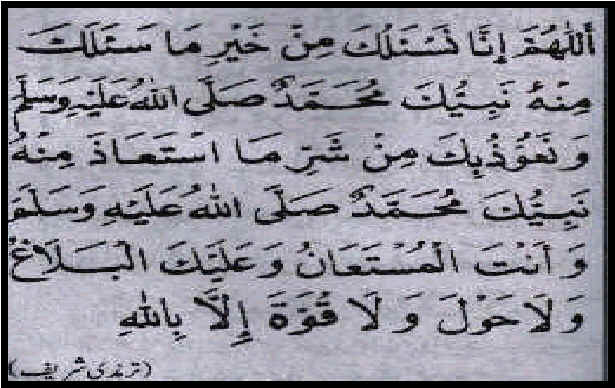 أَللّٰهُمَّ إِنَّا نَسْئَلُكَ مِنْ خَيْرِ مَا سَئَلَكَ
مِنْهُ نَبِيُّكَ مُحَمَّدٌ صَلَّى اللهُ عَلَيْهِ وَسَلَّمَ
وَ نَعُوْذُبِكَ مِنْ شَرِّ مَا اسْتَعَاذَ مِنْهُ
نَبِيُّكَ مُحَمَّدٌ صَلَّى اللهُ عَلَيْهِ وَسَلَّمَ
وَ أَنْتَ الْمُسْتَعَانُ وَ عَلَيْكَ الْبَلَاغُ
وَلَا حَوْلَ وَ لَا قُوَّةَ إِلَّا بِاللهِ
(ترمذی شریف)